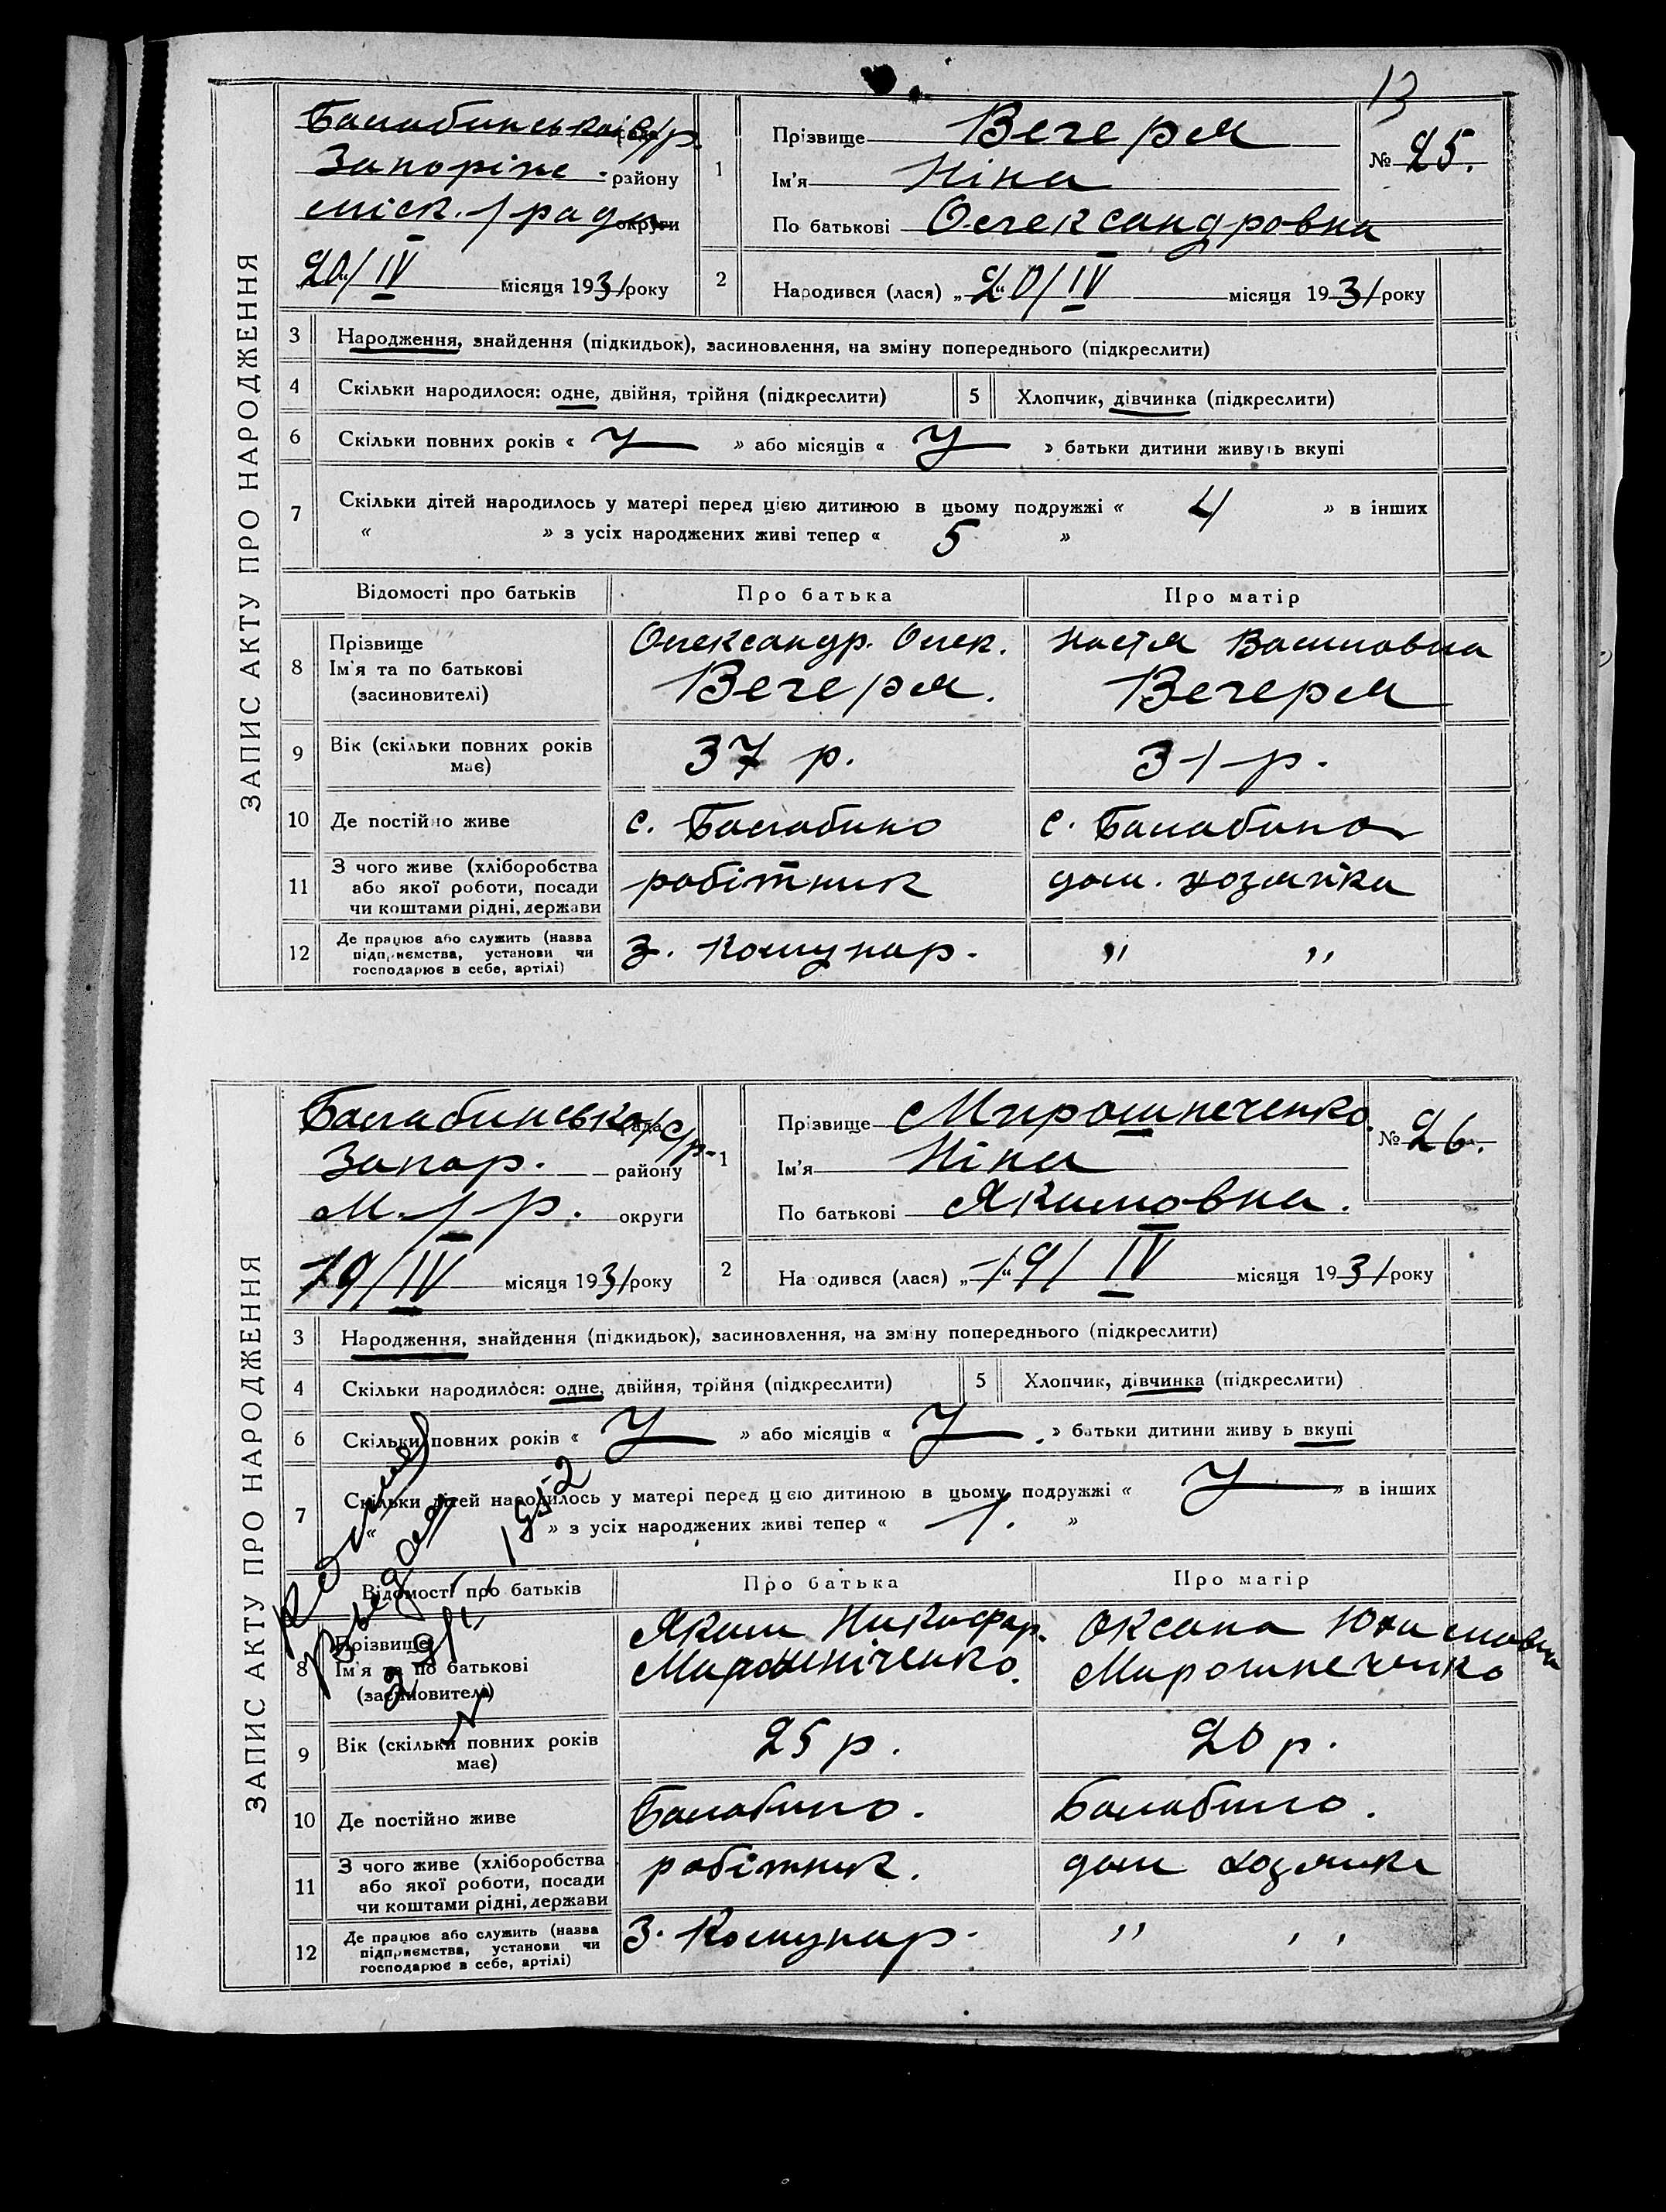 13
ЗАПИС АКТУ ПРО НАРОДЖЕННЯ
Балабинської с/р.
Запоріж. району
міск. /ради округи
20/IV місяця 1931 року
1 Прізвище Вечеря
Ім'я Ніна
По батькові Олександровна
№ 25.
2 Народився (лася) „20/IV місяця 1931 року
3 Народження, знайдення (підкидьок), засиновлення, на зміну попереднього (підкреслити)
4 Скільки народилося: одне, двійня, трійня (підкреслити) 5 Хлопчик, дівчинка (підкреслити)
6 Скільки повних років « » або місяців « » батьки дитини живуть вкупі
7 Скільки дітей народилось у матері перед цією дитиною в цьому подружжі « 4 » в інших
« » з усіх народжених живі тепер « 5 »
Відомості про батьків Про батька Про матір
8 Прізвище Ім'я та по батькові (засиновителі)
Олександр. Олек. Настя Василовна
Вечеря. Вечеря
9 Вік (скільки повних років має) 37 р. 31 р.
10 Де постійно живе с. Балабино с. Балабино
11 З чого живе (хліборобства або якої роботи, посади чи коштами рідні, держави робітник дом. хозяйка
12 Де працює або служить (назва підприємства, установи чи господарює в себе, артілі) З. Комунар. „ „
ЗАПИС АКТУ ПРО НАРОДЖЕННЯ
Балабинської с/р.
Запор. району
М. / р. округи
19/IV місяця 1931 року
1 Прізвище Мирошнеченко.
Ім'я Ніна
По батькові Якимовна.
№ 26.
2 Народився (лася) „19/ IV місяця 1931 року
3 Народження, знайдення (підкидьок), засиновлення, на зміну попереднього (підкреслити)
4 Скільки народилося: одне, двійня, трійня (підкреслити) 5 Хлопчик, дівчинка (підкреслити)
6 Скільки повних років « » або місяців « » батьки дитини живуть вкупі
7 Скільки дітей народилось у матері перед цією дитиною в цьому подружжі « » в інших
« » з усіх народжених живі тепер « 1. »
Відомості про батьків Про батька Про матір
8 Прізвище Ім'я та по батькові (засиновителі)
Яким Никифор. Оксана
Мирошніченко. Мирошнеченко
9 Вік (скільки повних років має) 25 р. 20 р.
10 Де постійно живе Балабино. Балабино.
11 З чого живе (хліборобства або якої роботи, посади чи коштами рідні, держави робітник. дом хозяйка
12 Де працює або служить (назва підприємства, установи чи господарює в себе, артілі) З. Комунар. „ „